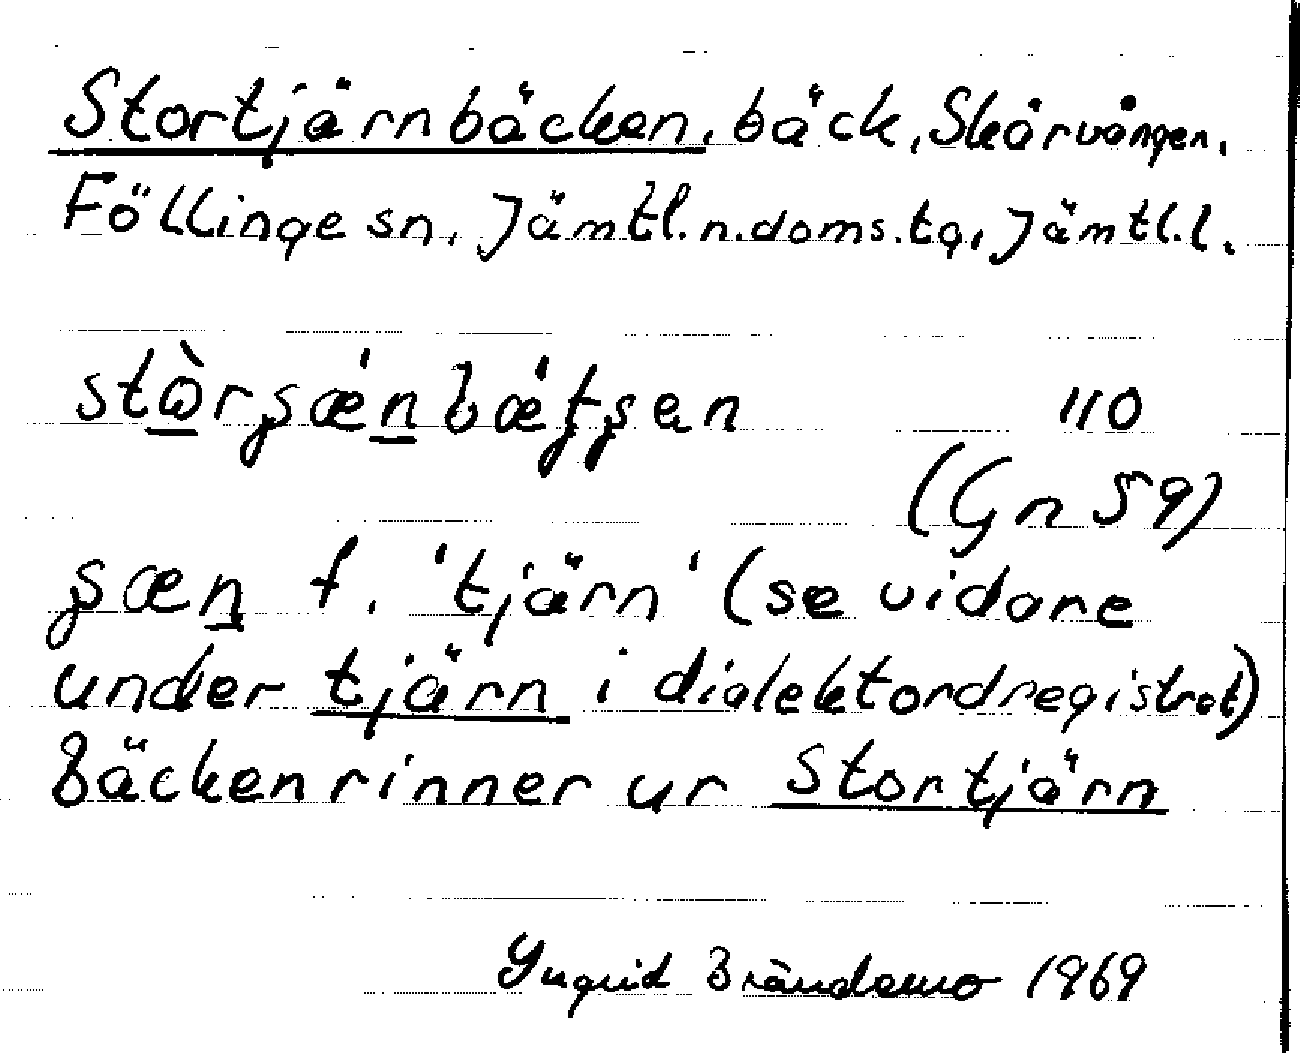 Stortjärnbäcken, bäck, Skärvången,
Föllinge sn, Jämtl.n.doms.tg, Jämtl.l.
stɷ̀rʂǽn̲bǽʈʂen 110
(Gn 59)
ʂæn̲ f. 'tjärn' (se vidare
under tjärn i dialektordregistret)
Bäcken rinner ur Stortjärn
Yngrid Brändemo 1969